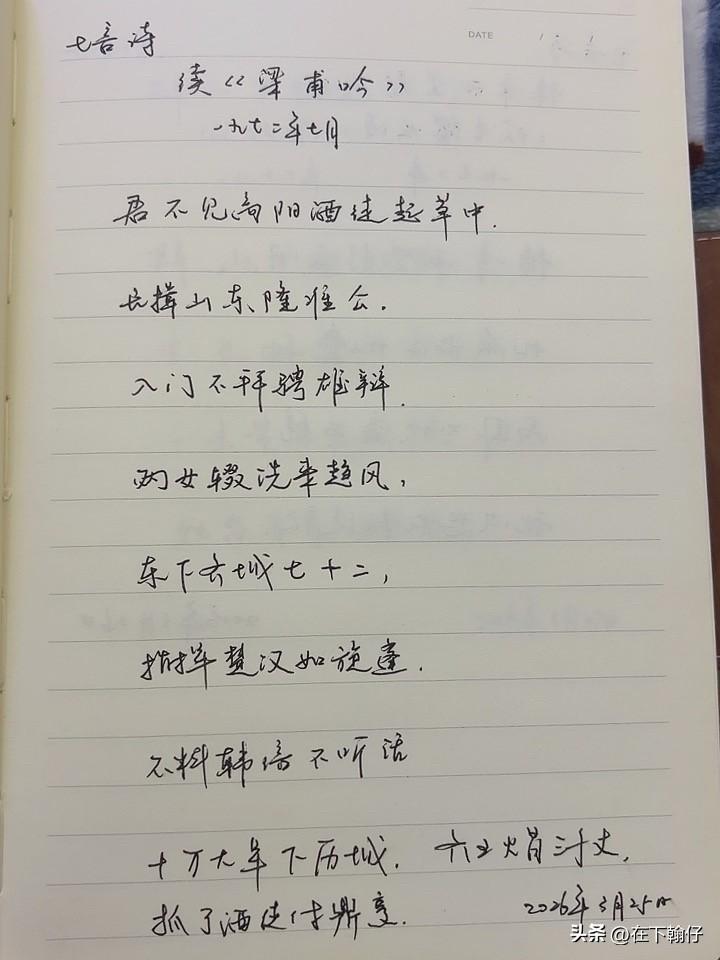 DATE / . /
七言诗
续《梁甫吟》
一九七二年七月
君不见高阳酒徒起草中.
长揖山东隆准公.
入门不拜骋雄辩.
两女辍洗来趋风,
东下齐城七十二,
指挥楚汉如旋蓬.
不料韩信不听话
十万大军下历城. 齐王火冒三丈,
抓了酒徒付鼎烹.
2026年3月25日
头条 @在下翰仔